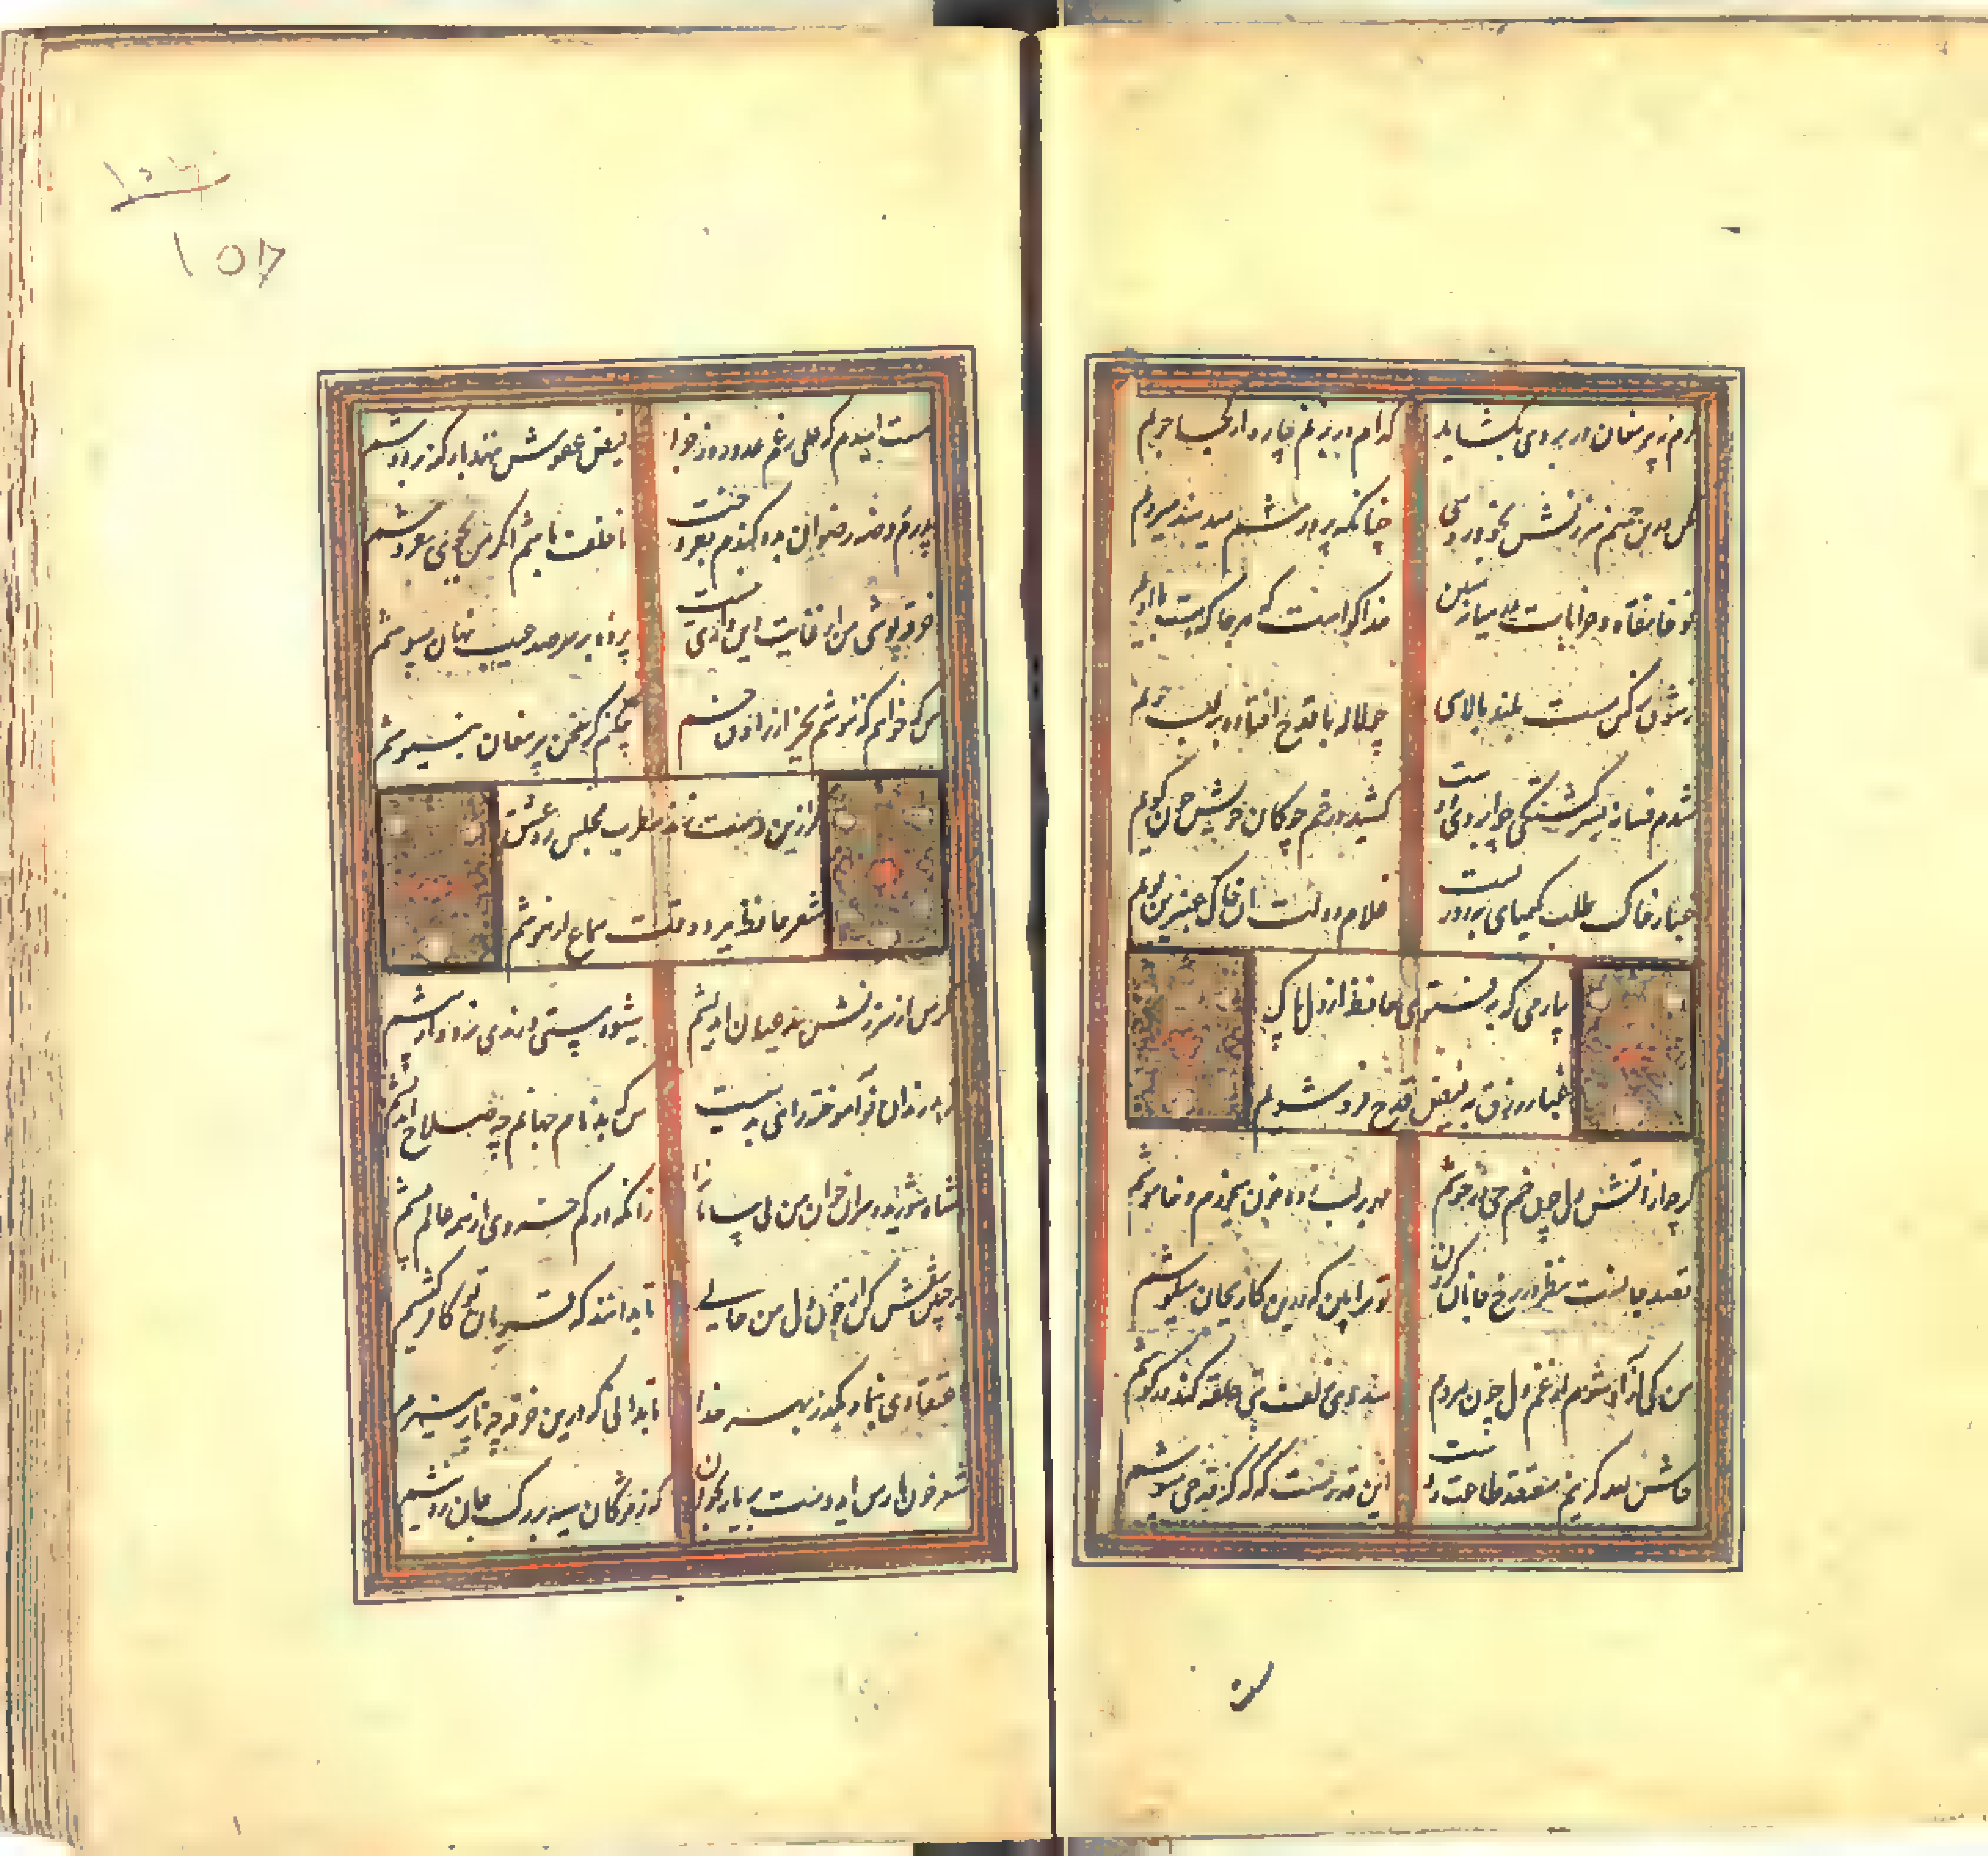 گرم نه پیر مغان در بروی بگشاید کدام در بزنم چاره از کجا جویم
مکن درین چمنم سرزنش بخود رویی چنانکه پرورشم میدهند میرویم
تو خانقاه و خرابات در میانه مبین خدا گواست که هر جا که هست با اویم
ز شوق نرگس مست بلند بالایی چو لاله با قدح افتاده بر لب جویم
شدم فسانه بسرگشتگی چو ابروی دوست کشید در خم چوکان خویش چون گویم
غبار راه طلب کیمیای بهروزیست غلام دولت آن خاک عنبرین بویم
بیار می که بفتوی حافظ از دل پاک
غبار زرق به فیض قدح فرو شویم
گر چه از آتش دل چون خم می در جوشم مهر بر لب زده خون میخورم و خاموشم
قصد جانست طمع در لب جانان کردن تو مرا بین که درین کار بجان میکوشم
من کی آزاد شوم از غم دل چون هر دم هندوی زلف بتی حلقه کند در گوشم
حاش لله که نیم معتقد طاعت خویش این قدر هست که گه گه قدحی مینوشم
هست
هست امیدم که علی رغم عدو روز جزا فیض عفوش ننهد بار گنه بر دوشم
پدرم روضه رضوان بدو گندم بفروخت ناخلف باشم اگر من بجوی نفروشم
خرقه پوشی من از غایت دین داری نیست پرده بر سر صد عیب نهان میپوشم
من که خواهم که ننوشم بجز از راوق خم چکنم گر سخن پیر مغان ننیوشم
گر ازین دست زند مطرب مجلس ره عشق
شعر حافظ ببرد وقت سماع از هوشم
گر من از سرزنش مدعیان اندیشم شیوه مستی و رندی نرود از پیشم
زهد رندان نوآموخته راهی بدهیست من که بدنام جهانم چه صلاح اندیشم
شاه شوریده سران خوان من بی سامان را زانکه در کم خردی از همه عالم بیشم
بر جبین نقش کن از خون دل من خالی تا بدانند که قربان تو کافر کیشم
اعتقادی بنما و بگذر بهر خدا تا بدانی که درین خرقه چه نادرویشم
شعر خونبار من ای دوست بر یار بخوان که ز مژگان سیه بر رگ جان زد نیشم
۱۵۷